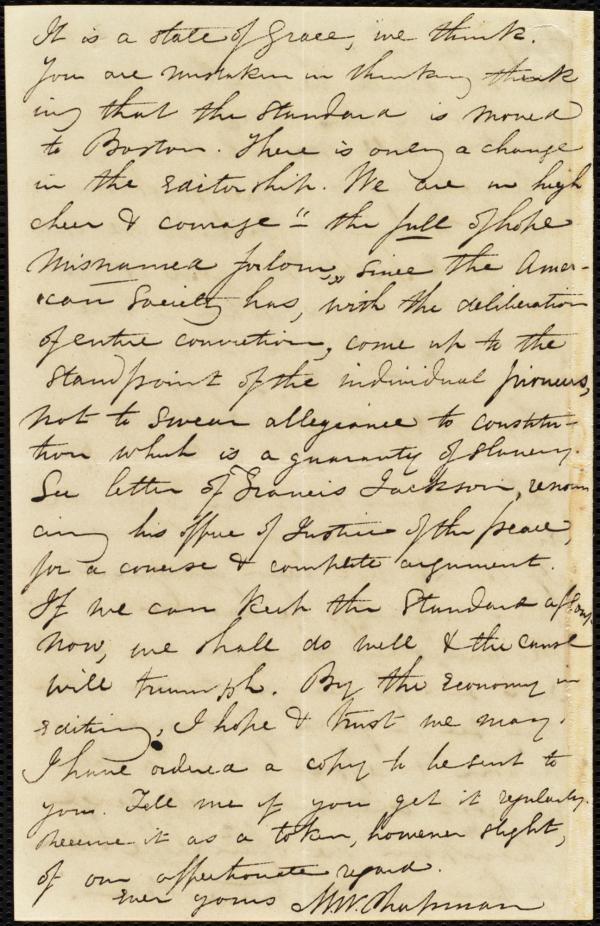 It is a state of Grace, we think.
You are mistaken in thinking think
ing that the Standard is moved
to Boston. There is only a change
in the Editorship. We are in high
cheer & courage "the full of hope
misnamed forlorn," since the Amer-
ican Society has, with the deliberation
of entire conviction, come up to the
standpoint of the individual pioneers,
not to swear allegiance to constitu-
tion which is a guaranty of slavery.
See letter of Francis Jackson, renoun
cing his office of Justice of the peace,
for a concise & complete argument.
If we can keep the Standard afloat
now, we shall do well & the cause
will triumph. By the Economy in
editing, I hope & trust we may.
I have ordered a copy to be sent to
you. Tell me if you get it regularly.
Receive it as a token, however slight,
of our affectionate regard.
Ever yours M.W. Chapman